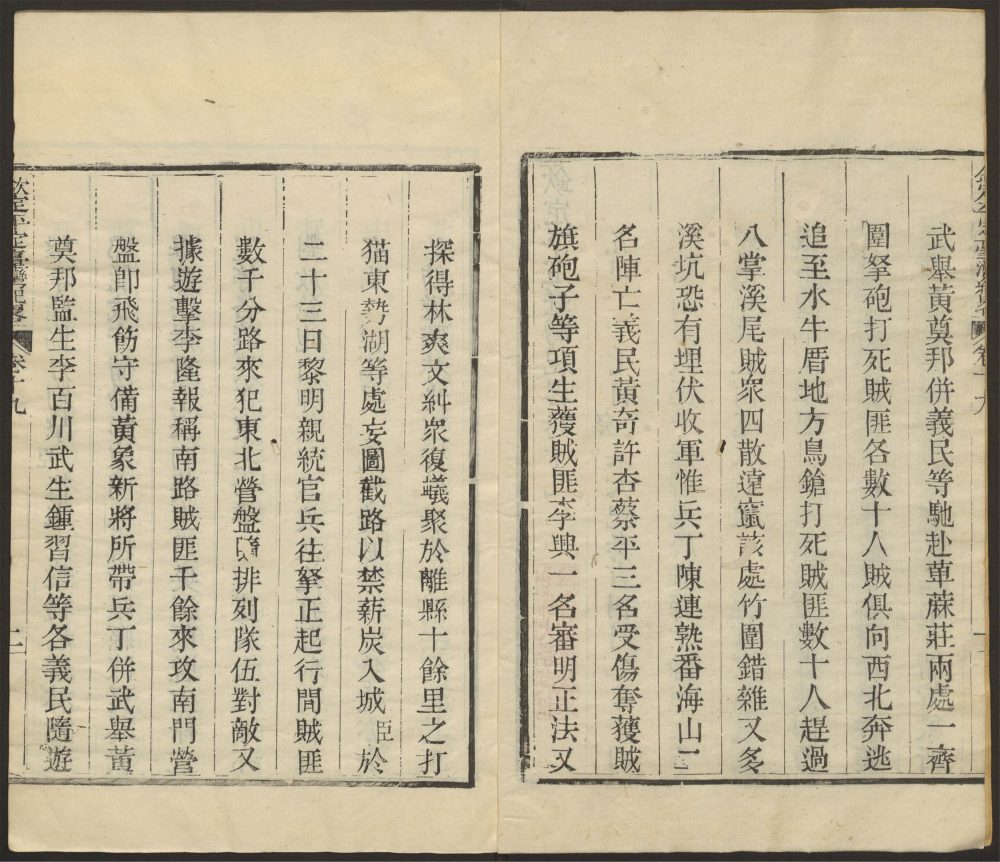 武舉黃奠邦併義民等馳赴草蔴莊兩處一齊
圍拏砲打死賊匪各數十人賊俱向西北奔逃
追至水牛厝地方鳥鎗打死賊匪數十人趕過
八掌溪尾賊眾四散遠竄該處竹圍錯雜又多
溪坑恐有埋伏收軍惟兵丁陳連熟番海山二
名陣亡義民黃奇許杏蔡平三名受傷奪獲賊
旗砲子等項生獲賊匪李興一名審明正法又
探得林爽文糾眾復嶬聚於離縣十餘里之打
猫東勢湖等處妄圖截路以禁薪炭入城臣於
二十三日黎明親統官兵往拏正起行間賊匪
數千分路來犯東北營盤隨排列隊伍對敵又
據遊擊李隆報稱南路賊匪千餘來攻南門營
盤卽飛飭守備黃象新將所帶兵丁併武舉黃
奠邦監生李百川武生鍾習信等各義民隨遊
欽定平定臺灣紀畧 卷十九 二